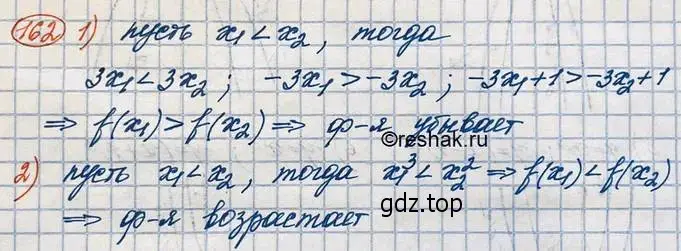 162 1) пусть x₁ < x₂, тогда
3x₁ < 3x₂; -3x₁ > -3x₂; -3x₁+1 > -3x₂+1
⇒ f(x₁) > f(x₂) ⇒ ф-я убывает
©reshak.ru
2) пусть x₁ < x₂, тогда x₁³ < x₂² ⇒ f(x₁) < f(x₂)
⇒ ф-я возрастает
gdz.top